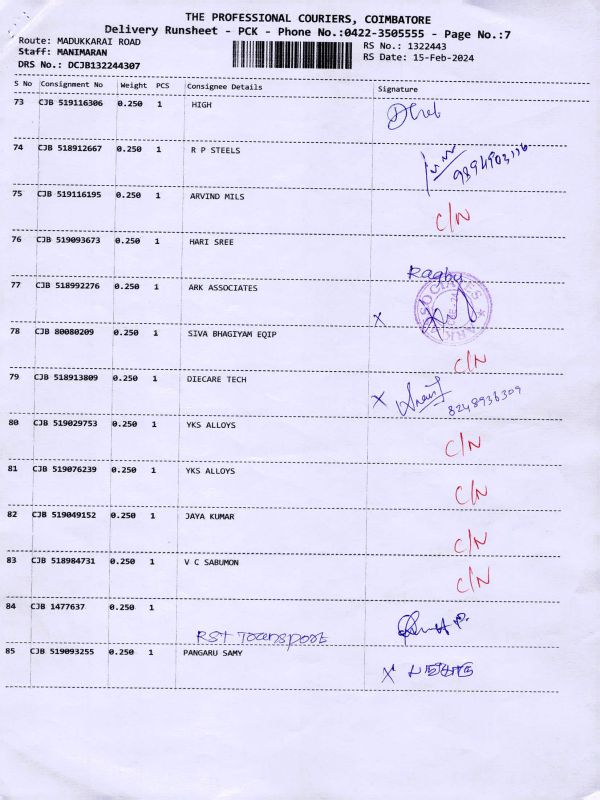 THE PROFESSIONAL COURIERS, COIMBATORE
Delivery Runsheet - PCK - Phone No.:0422-3505555 - Page No.:7
Route: MADUKKARAI ROAD RS No.: 1322443
Staff: MANIMARAN RS Date: 15-Feb-2024
DRS No.: DCJB132244307
S No Consignment No Weight PCS Consignee Details Signature
73 CJB 519116306 0.250 1 HIGH
74 CJB 518912667 0.250 1 R P STEELS
75 CJB 519116195 0.250 1 ARVIND MILS C/N
76 CJB 519093673 0.250 1 HARI SREE Ragbu
77 CJB 518992276 0.250 1 ARK ASSOCIATES X
78 CJB 80080209 0.250 1 SIVA BHAGIYAM EQIP C/N
79 CJB 518913809 0.250 1 DIECARE TECH X 8248936309
80 CJB 519029753 0.250 1 YKS ALLOYS C/N
81 CJB 519076239 0.250 1 YKS ALLOYS C/N
82 CJB 519049152 0.250 1 JAYA KUMAR C/N
83 CJB 518984731 0.250 1 V C SABUMON C/N
84 CJB 1477637 0.250 1
RST Transport
85 CJB 519093255 0.250 1 PANGARU SAMY X